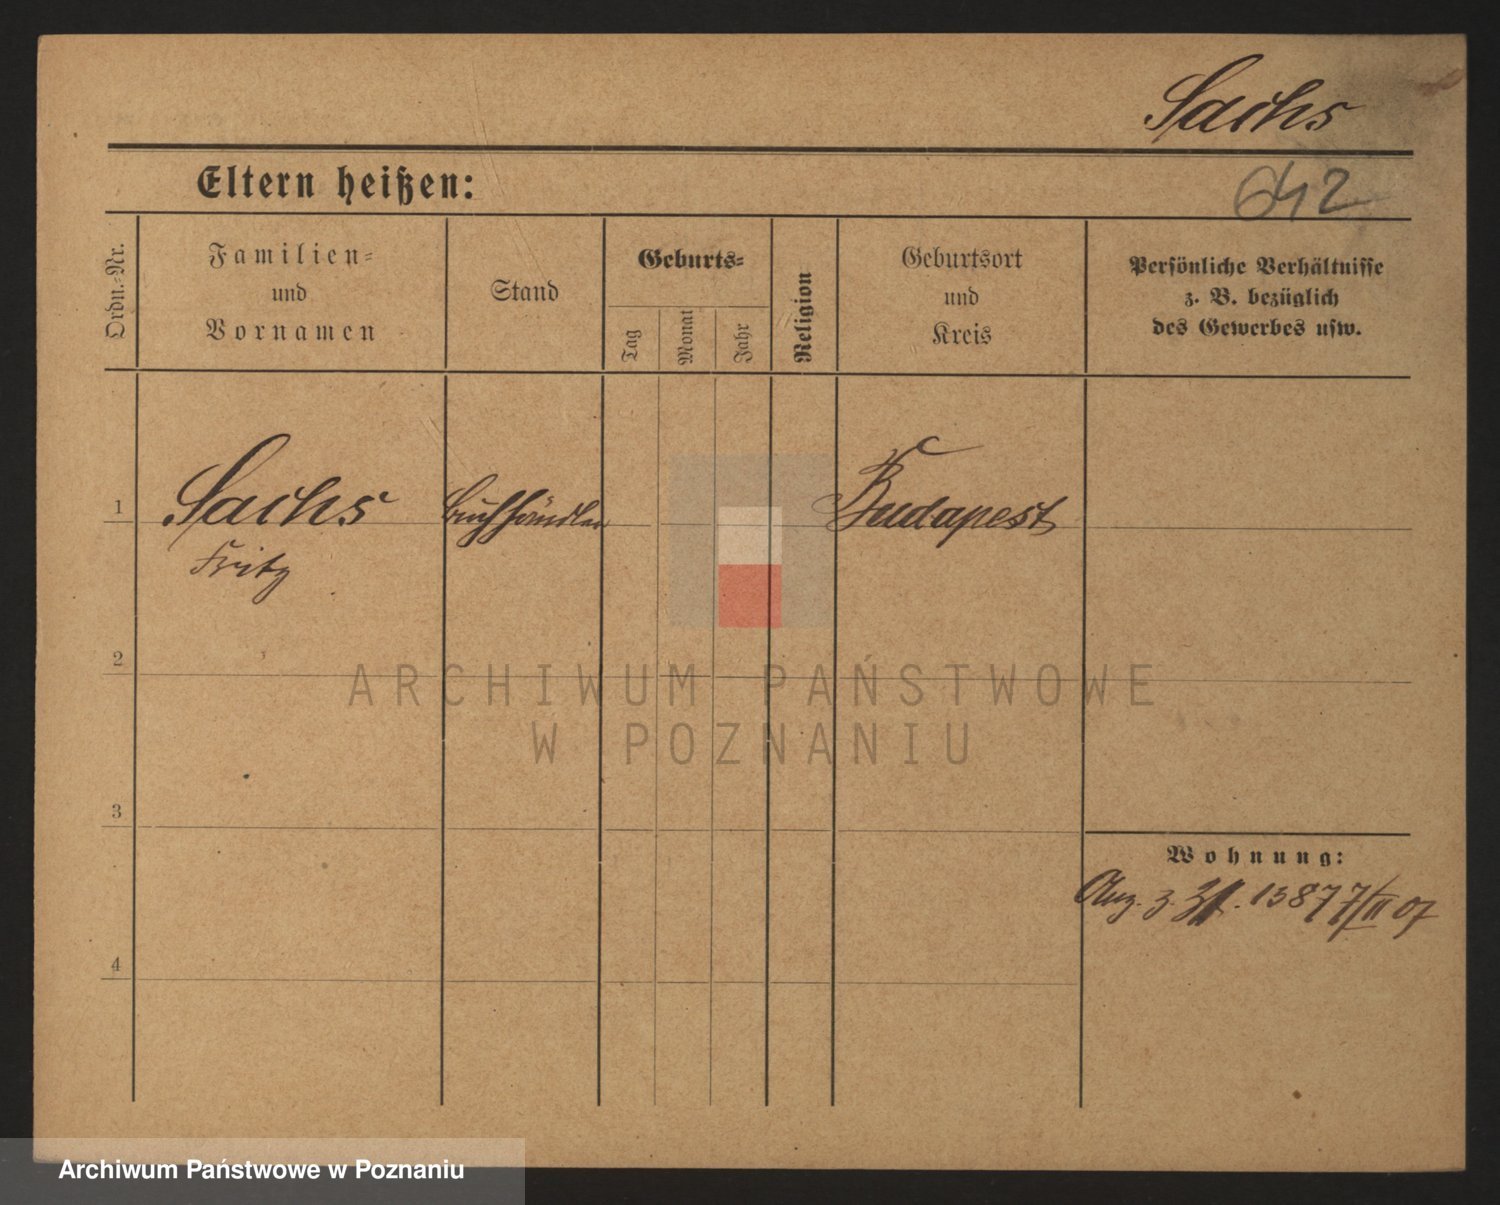 Sachs
642
Eltern heißen:
Ordn.-Nr.
Familien-
und
Vornamen
Stand
Geburts-
Tag
Monat
Jahr
Religion
Geburtsort
und
Kreis
Persönliche Verhältnisse
z. B. bezüglich
des Gewerbes usw.
1
Sachs
Fritz
Buchhändler
Budapest
2
ARCHIWUM PAŃSTWOWE
W POZNANIU
3
Wohnung:
Anz. z. 13877/II 07
4
Archiwum Państwowe w Poznaniu